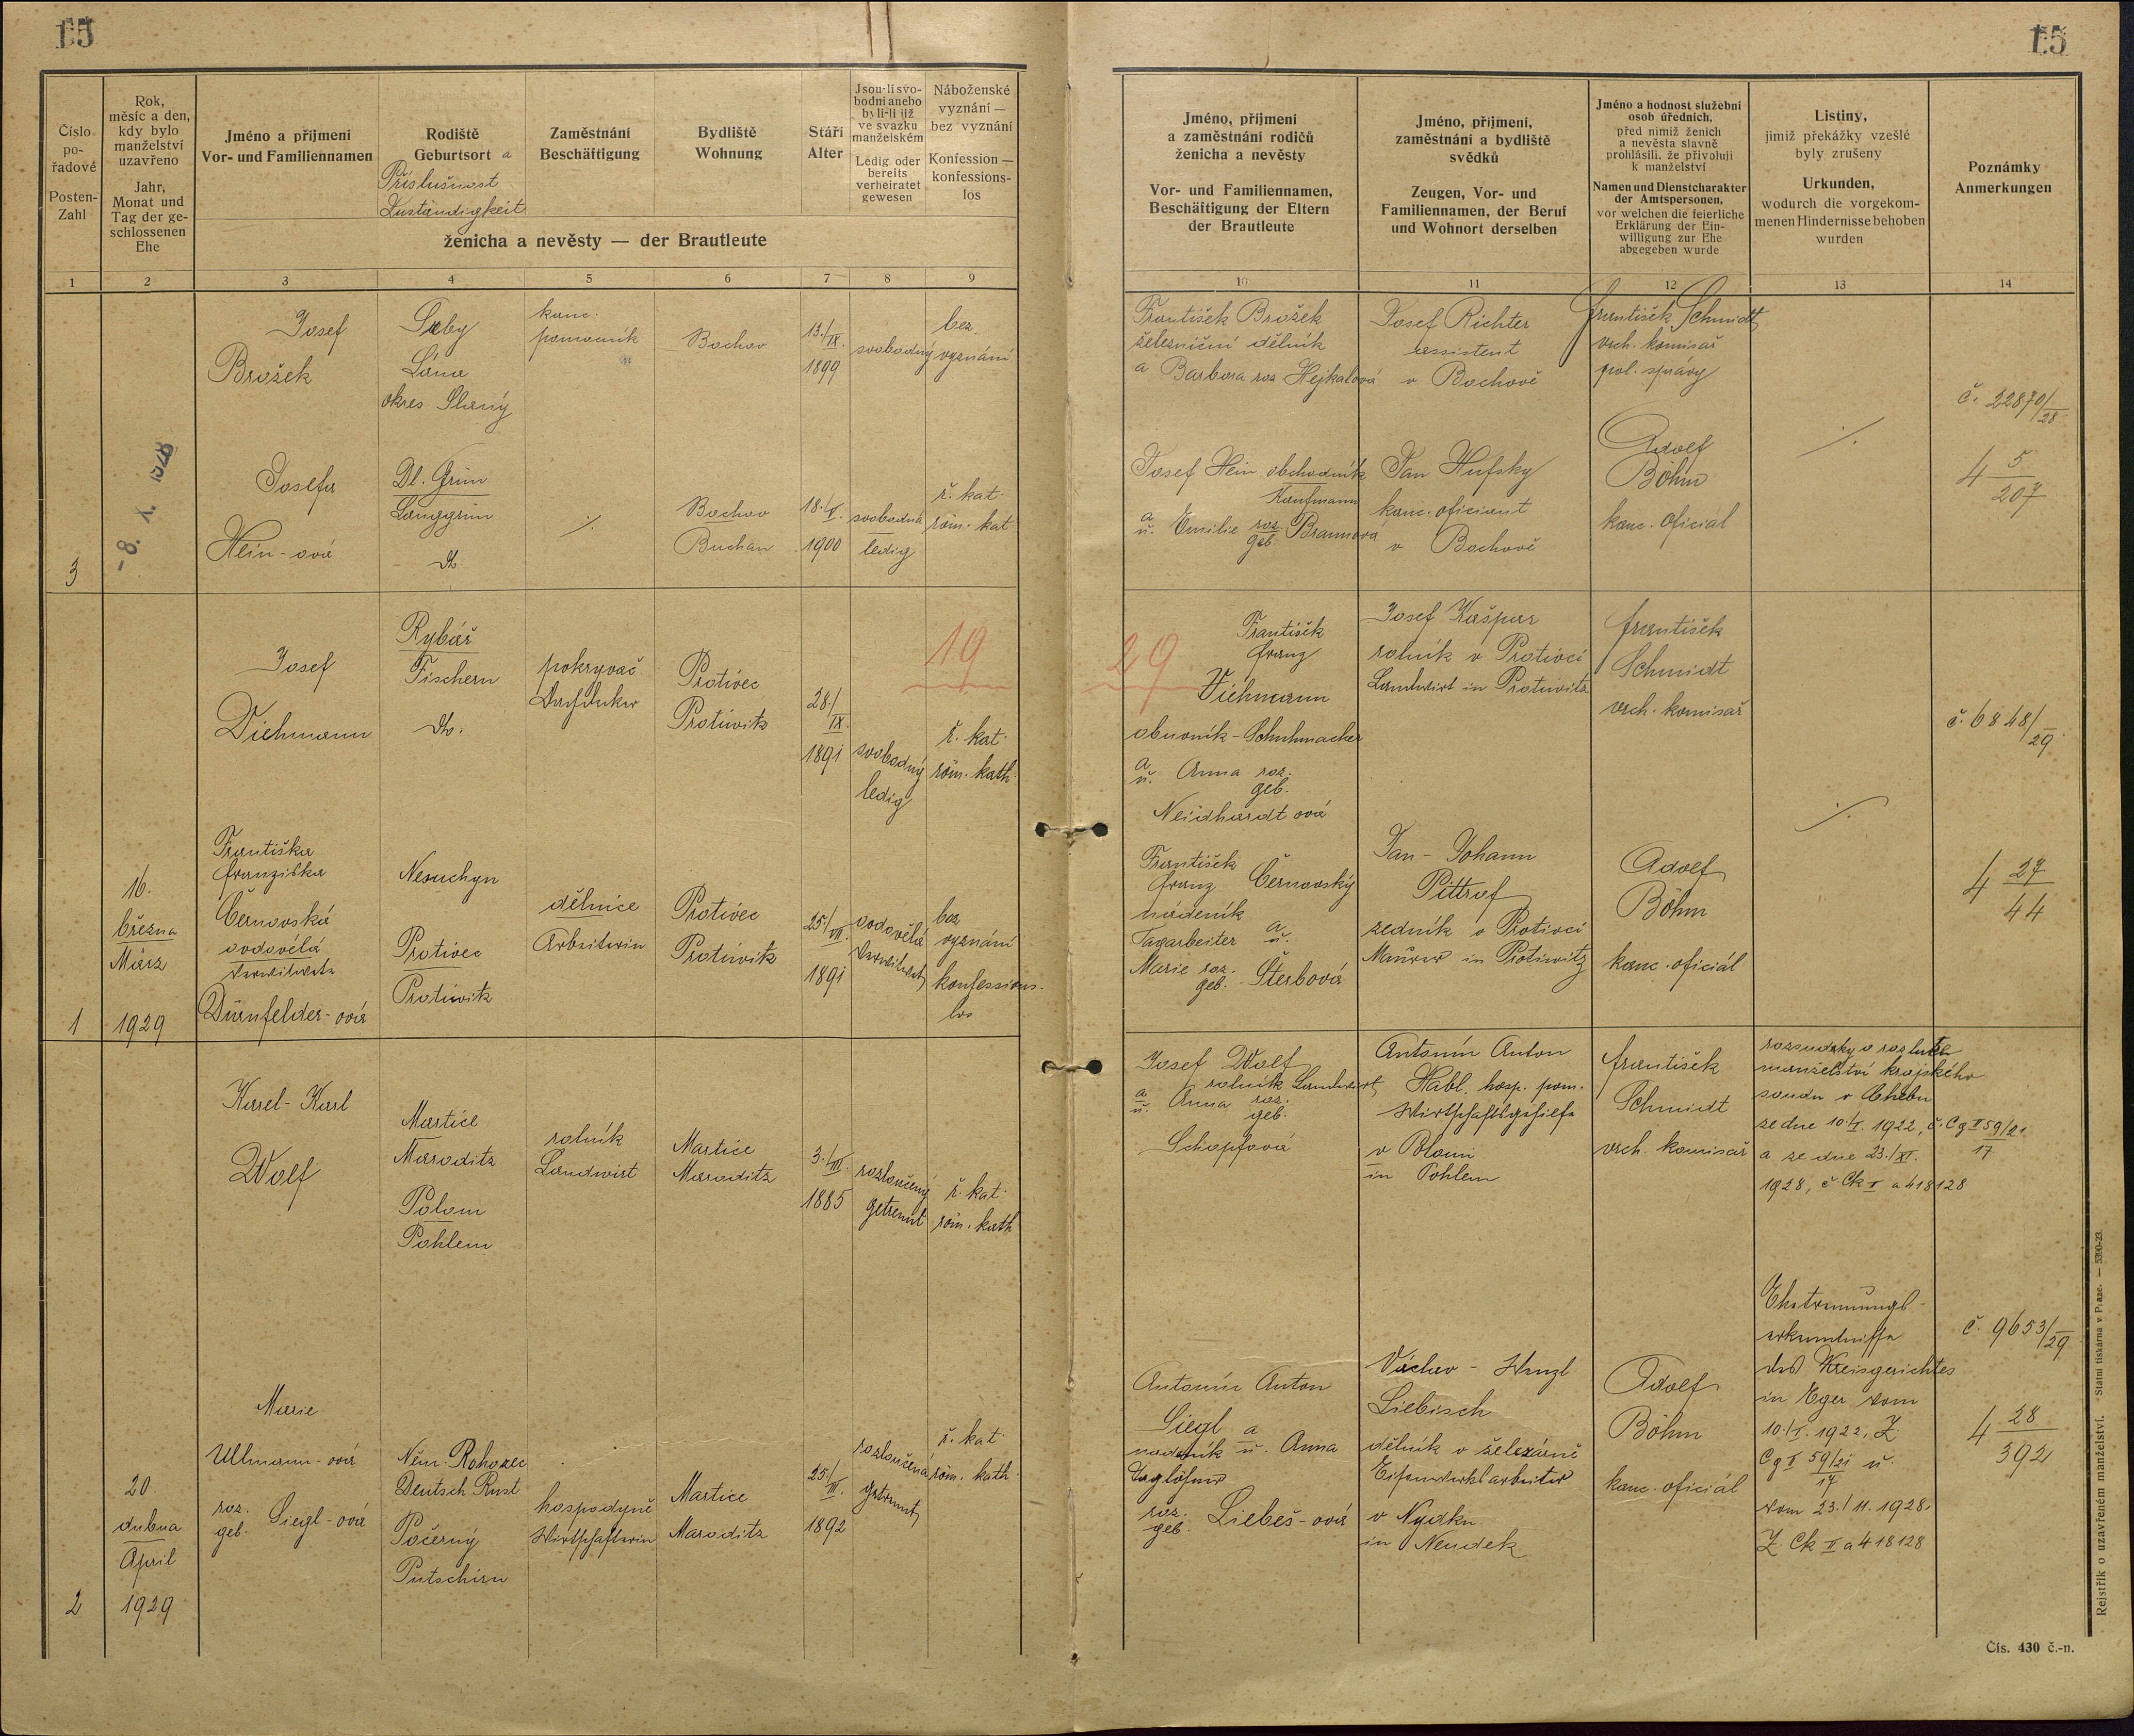 15
15
Číslo po-řadové
Posten-Zahl
Rok, měsíc a den, kdy bylo manželství uzavřeno
Jahr, Monat und Tag der ge-schlossenen Ehe
Jméno a příjmení
Vor- und Familiennamen
Rodiště
Geburtsort a
Příslušnost
Zuständigkeit
Zaměstnání
Beschäftigung
Bydliště
Wohnung
Stáří
Alter
Jsou-li svo-bodni anebo byli-li již ve svazku manželském
Ledig oder bereits verheiratet gewesen
Náboženské vyznání — bez vyznání
Konfession — konfessions-los
ženicha a nevěsty — der Brautleute
1 2 3 4 5 6 7 8 9
Jméno, příjmení a zaměstnání rodičů ženicha a nevěsty
Vor- und Familiennamen, Beschäftigung der Eltern der Brautleute
Jméno, příjmení, zaměstnání a bydliště svědků
Zeugen, Vor- und Familiennamen, der Beruf und Wohnort derselben
Jméno a hodnost služební osob úředních, před nimiž ženich a nevěsta slavně prohlásili, že přivolují k manželství
Namen und Dienstcharakter der Amtspersonen, vor welchen die feierliche Erklärung der Ein-willigung zur Ehe abgegeben wurde
Listiny, jimiž překážky vzešlé byly zrušeny
Urkunden, wodurch die vorgekom-menen Hindernisse behoben wurden
Poznámky
Anmerkungen
10 11 12 13 14
3
-8. X. 1928
Josef
Brožek
Lána
okres Slaný
kanc.
pomocník
Bochov
13./IX.
1899
svobodný
bez
vyznání
František Brožek
železniční dělník
a Barbara roz Hejkalová
Josef Richter
assistent
v Bochově
František Schmidt
vrch. komisař
pol. správy
č. 22870/28
Josefa
Hein-ová
Dl. Grün
Langgrün
dto.
./.
Bochov
Buchau
18./V.
1900
svobodná
ledig
ř. kat.
röm. kat
Josef Hein obchodník
Kaufmann
a u. Emilie roz. geb. Braunová
Jan Hufsky
kanc. oficiant
v Bochově
Adolf
Böhm
kanc. oficiál
./.
4 5/207
1
16.
března
März
1929
Josef
Diehmann
Rybář
Fischern
dto.
pokryvač
Dachdecker
Protivec
Protiwitz
28./IX.
1891
svobodný
ledig
ř. kat.
röm. kath.
19
29.
František
Franz
Diehmann
obuvník - Schuhmacher
a u. Anna roz. geb.
Neidhardt ová
Josef Kašpar
rolník v Protivci
Landwirt in Protiwitz
František
Schmidt
vrch. komisař
č. 6848/29
Františka
Franziska
Černovská
ovdovělá
verwitwete
Dürnfelder-ová
Nesuchyn
Protivec
Protiwitz
dělnice
Arbeiterin
Protivec
Protiwitz
25./VII.
1891
ovdovělá
verwitwet
bez
vyznání
konfessions-
los
František
Franz Černovský
nádeník
Tagarbeiter a u.
Marie roz. geb. Šterbová
Jan - Johann
Pittrof
zedník v Protivci
Maurer in Protiwitz
Adolf
Böhm
kanc. oficiál
./.
4 27/44
2
20.
dubna
April
1929
Karel - Karl
Wolf
Martice
Maroditz
Polom
Pohlem
rolník
Landwirt
Martice
Maroditz
3./III.
1885
rozloučený
getrennt
ř. kat.
röm. kath
Josef Wolf
rolník Landwirt
a u. Anna roz. geb.
Schopfová
Antonín Anton
Habl, hosp. pom.
Wirtschaftsgehilfe
v Polomi
in Pohlem
František
Schmidt
vrch. komisař
rozsudky o rozluce
manželství krajského
soudu v Chebu
ze dne 10./I. 1922, č. Cg I 59/21/17
a ze dne 23./XI.
1928, č Ck II a 418/28
Marie
Ullmann-ová
roz. geb. Siegl-ová
Něm. Rohozec
Deutsch Rust
Počerný
Putschirn
hospodyně
Wirtschafterin
Martice
Maroditz
25./III.
1892
rozloučená
getrennt
ř. kat.
röm. kath.
Antonín Anton
Siegl a
nádeník u. Anna
Taglöhner
roz. geb. Liebeš-ová
Václav - Wenzl
Liebisch
dělník v železárně
Eisenwerksarbeiter
v Nydku
in Neudek
Adolf
Böhm
kanc. oficiál
Ehetrennungs-
erkenntnisse
des Kreisgerichtes
in Eger vom
10./I. 1922, Z.
Cg I 59/21/17 u.
vom 23./11. 1928.
Z. Ck II a 418/28
č. 9653/29
4 28/392
Rejstřík o uzavřeném manželství. Státní tiskárna v Praze. — 5390-23.
Čís. 430 č.-n.